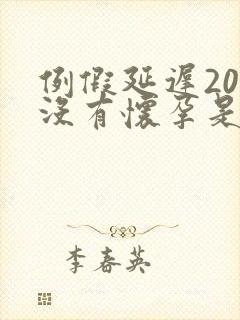 例假延遲20
沒有懷孕是
李春英